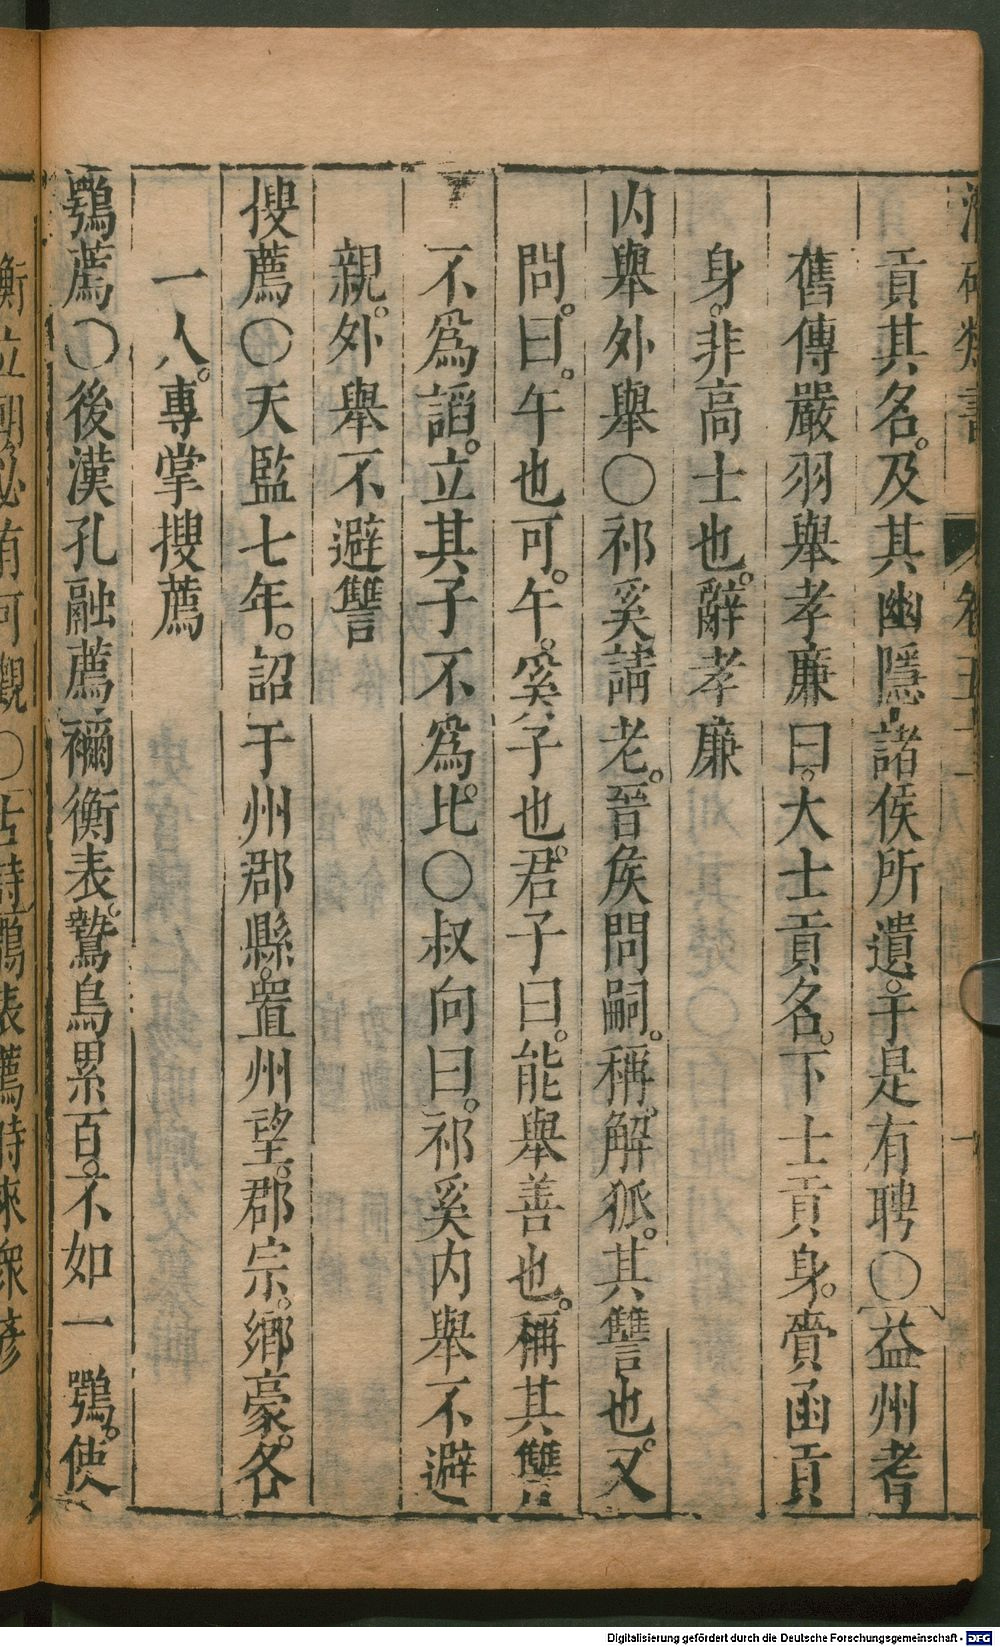 類書 卷五十一
貢其名。及其幽隱諸侯所遺。于是有聘○益州耆
舊傳嚴羽舉孝廉曰。大士貢名。下士貢身。賫函貢
身。非高士也。辭孝廉
内舉外舉○祁奚請老。晉矦問嗣。稱。解狐。其讐也。又
問。曰。午也可。午。奚子也。君子曰。能舉善也。稱其讐
不爲謟。立其子不爲比。○叔向曰。祁奚内舉不避
親。外舉不避讐
搜薦○天監七年。詔于州郡縣。置州望。郡宗。鄉豪。各
一人。專掌搜薦
鶚薦○後漢孔融薦禰衡表。鷙鳥累百。不如一鶚。使
衡立朝必有可觀○古詩鶚表薦時來眾彥
Digitalisierung gefördert durch die Deutsche Forschungsgemeinschaft - DFG